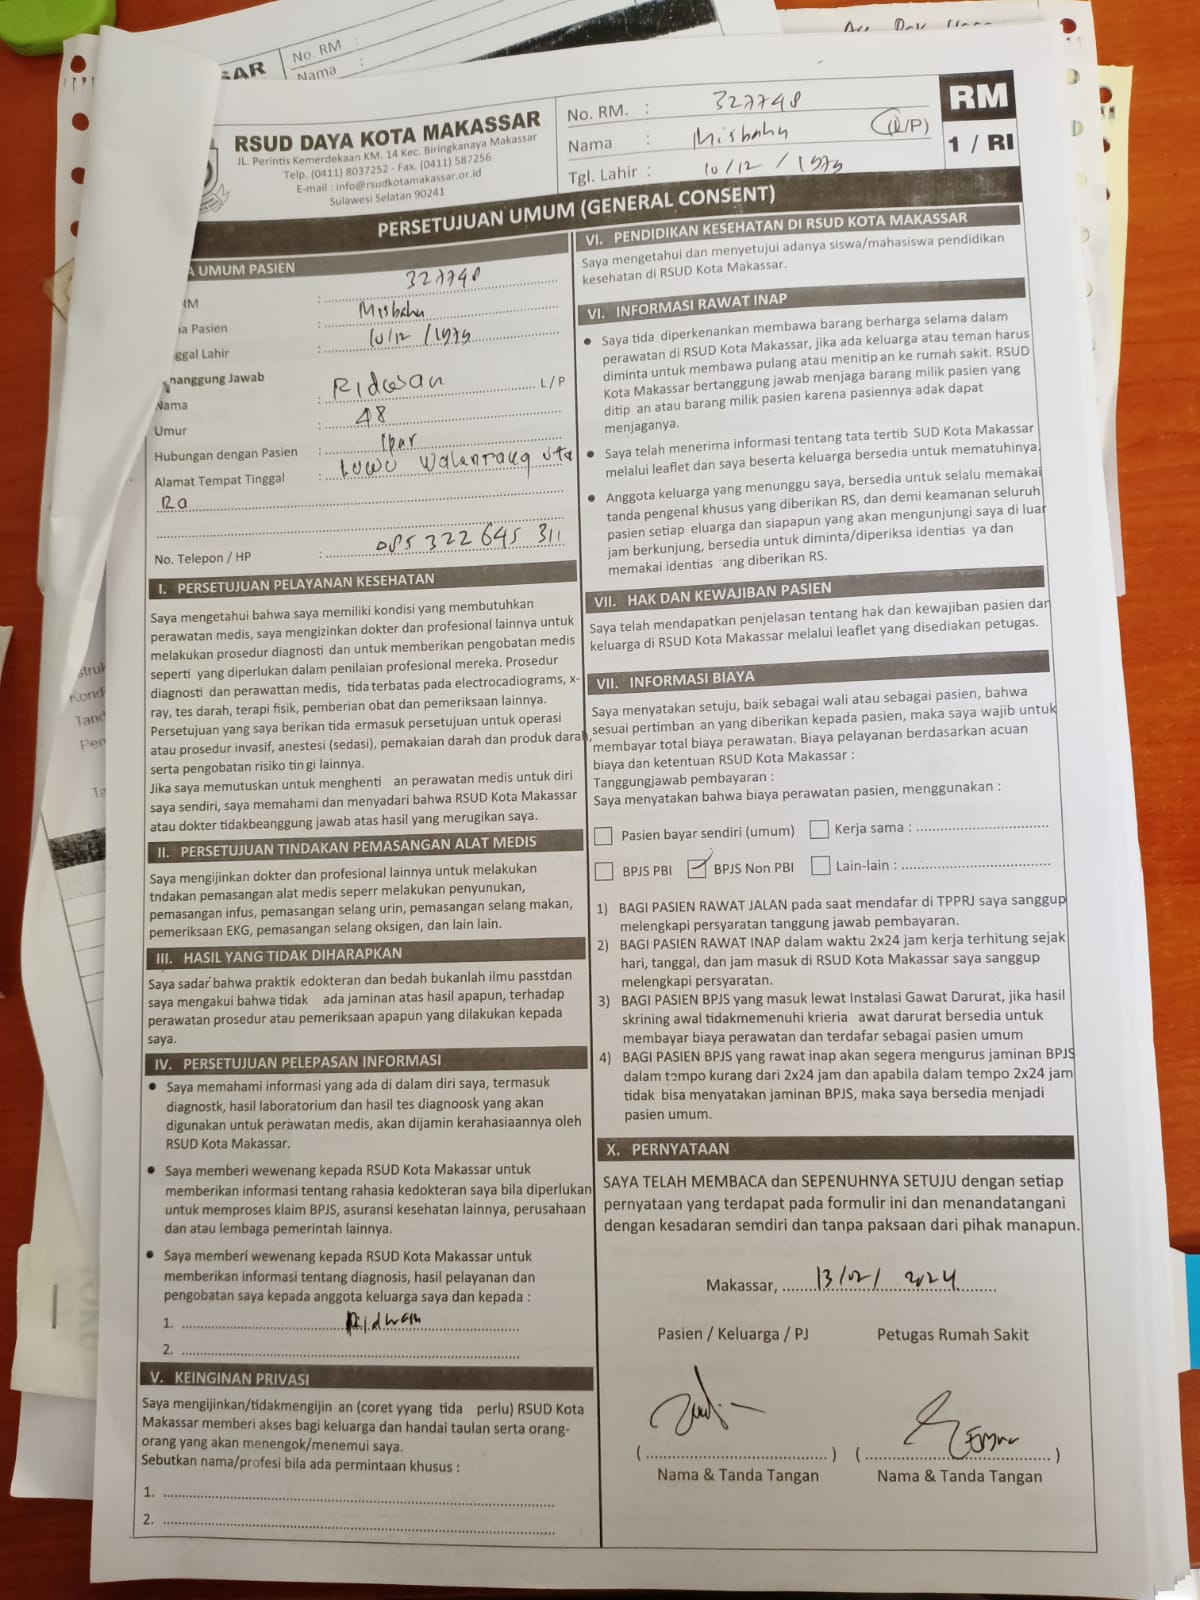 No. RM :
Nama :
SAR
RSUD DAYA KOTA MAKASSAR
JL. Perintis Kemerdekaan KM. 14 Kec. Biringkanaya Makassar
Telp. (0411) 8037252 - Fax. (0411) 587256
E-mail : info@rsudkotamakassar.or.id
Sulawesi Selatan 90241
No. RM. : 327748
Nama : Misbahu (L/P)
Tgl. Lahir : 10/12/1979
RM
1 / RI
PERSETUJUAN UMUM (GENERAL CONSENT)
A UMUM PASIEN
RM : 327748
a Pasien : Misbahu
ggal Lahir : 10/12/1979
nanggung Jawab
Nama : Ridwan L/P
Umur : 48
Hubungan dengan Pasien : Ipar
Alamat Tempat Tinggal : Luwu Walenrang uta
Ra
No. Telepon / HP : 085 322 645 311
I. PERSETUJUAN PELAYANAN KESEHATAN
Saya mengetahui bahwa saya memiliki kondisi yang membutuhkan
perawatan medis, saya mengizinkan dokter dan profesional lainnya untuk
melakukan prosedur diagnosti dan untuk memberikan pengobatan medis
seperti yang diperlukan dalam penilaian profesional mereka. Prosedur
diagnosti dan perawattan medis, tida terbatas pada electrocadiograms, x-
ray, tes darah, terapi fisik, pemberian obat dan pemeriksaan lainnya.
Persetujuan yang saya berikan tida ermasuk persetujuan untuk operasi
atau prosedur invasif, anestesi (sedasi), pemakaian darah dan produk darah,
serta pengobatan risiko tin gi lainnya.
Jika saya memutuskan untuk menghenti an perawatan medis untuk diri
saya sendiri, saya memahami dan menyadari bahwa RSUD Kota Makassar
atau dokter tidakbeanggung jawab atas hasil yang merugikan saya.
II. PERSETUJUAN TINDAKAN PEMASANGAN ALAT MEDIS
Saya mengijinkan dokter dan profesional lainnya untuk melakukan
tndakan pemasangan alat medis seperr melakukan penyunukan,
pemasangan infus, pemasangan selang urin, pemasangan selang makan,
pemeriksaan EKG, pemasangan selang oksigen, dan lain lain.
III. HASIL YANG TIDAK DIHARAPKAN
Saya sadar bahwa praktik edokteran dan bedah bukanlah ilmu passtdan
saya mengakui bahwa tidak ada jaminan atas hasil apapun, terhadap
perawatan prosedur atau pemeriksaan apapun yang dilakukan kepada
saya.
IV. PERSETUJUAN PELEPASAN INFORMASI
• Saya memahami informasi yang ada di dalam diri saya, termasuk
diagnostk, hasil laboratorium dan hasil tes diagnoosk yang akan
digunakan untuk perawatan medis, akan dijamin kerahasiaannya oleh
RSUD Kota Makassar.
• Saya memberi wewenang kepada RSUD Kota Makassar untuk
memberikan informasi tentang rahasia kedokteran saya bila diperlukan
untuk memproses klaim BPJS, asuransi kesehatan lainnya, perusahaan
dan atau lembaga pemerintah lainnya.
• Saya memberi wewenang kepada RSUD Kota Makassar untuk
memberikan informasi tentang diagnosis, hasil pelayanan dan
pengobatan saya kepada anggota keluarga saya dan kepada :
1. Ridwan
2.
V. KEINGINAN PRIVASI
Saya mengijinkan/tidakmengijin an (coret yyang tida perlu) RSUD Kota
Makassar memberi akses bagi keluarga dan handai taulan serta orang-
orang yang akan menengok/menemui saya.
Sebutkan nama/profesi bila ada permintaan khusus :
1.
2.
VI. PENDIDIKAN KESEHATAN DI RSUD KOTA MAKASSAR
Saya mengetahui dan menyetujui adanya siswa/mahasiswa pendidikan
kesehatan di RSUD Kota Makassar.
VI. INFORMASI RAWAT INAP
• Saya tida diperkenankan membawa barang berharga selama dalam
perawatan di RSUD Kota Makassar, jika ada keluarga atau teman harus
diminta untuk membawa pulang atau menitip an ke rumah sakit. RSUD
Kota Makassar bertanggung jawab menjaga barang milik pasien yang
ditip an atau barang milik pasien karena pasiennya adak dapat
menjaganya.
• Saya telah menerima informasi tentang tata tertib SUD Kota Makassar
melalui leaflet dan saya beserta keluarga bersedia untuk mematuhinya.
• Anggota keluarga yang menunggu saya, bersedia untuk selalu memakai
tanda pengenal khusus yang diberikan RS, dan demi keamanan seluruh
pasien setiap eluarga dan siapapun yang akan mengunjungi saya di luar
jam berkunjung, bersedia untuk diminta/diperiksa identias ya dan
memakai identias ang diberikan RS.
VII. HAK DAN KEWAJIBAN PASIEN
Saya telah mendapatkan penjelasan tentang hak dan kewajiban pasien dan
keluarga di RSUD Kota Makassar melalui leaflet yang disediakan petugas.
VII. INFORMASI BIAYA
Saya menyatakan setuju, baik sebagai wali atau sebagai pasien, bahwa
sesuai pertimban an yang diberikan kepada pasien, maka saya wajib untuk
membayar total biaya perawatan. Biaya pelayanan berdasarkan acuan
biaya dan ketentuan RSUD Kota Makassar :
Tanggungjawab pembayaran :
Saya menyatakan bahwa biaya perawatan pasien, menggunakan :
Pasien bayar sendiri (umum) Kerja sama :
BPJS PBI BPJS Non PBI Lain-lain :
1) BAGI PASIEN RAWAT JALAN pada saat mendafar di TPPRJ saya sanggup
melengkapi persyaratan tanggung jawab pembayaran.
2) BAGI PASIEN RAWAT INAP dalam waktu 2x24 jam kerja terhitung sejak
hari, tanggal, dan jam masuk di RSUD Kota Makassar saya sanggup
melengkapi persyaratan.
3) BAGI PASIEN BPJS yang masuk lewat Instalasi Gawat Darurat, jika hasil
skrining awal tidakmemenuhi krieria awat darurat bersedia untuk
membayar biaya perawatan dan terdafar sebagai pasien umum
4) BAGI PASIEN BPJS yang rawat inap akan segera mengurus jaminan BPJS
dalam tempo kurang dari 2x24 jam dan apabila dalam tempo 2x24 jam
tidak bisa menyatakan jaminan BPJS, maka saya bersedia menjadi
pasien umum.
X. PERNYATAAN
SAYA TELAH MEMBACA dan SEPENUHNYA SETUJU dengan setiap
pernyataan yang terdapat pada formulir ini dan menandatangani
dengan kesadaran semdiri dan tanpa paksaan dari pihak manapun.
Makassar, 13/02/2024
Pasien / Keluarga / PJ Petugas Rumah Sakit
Nama & Tanda Tangan Nama & Tanda Tangan